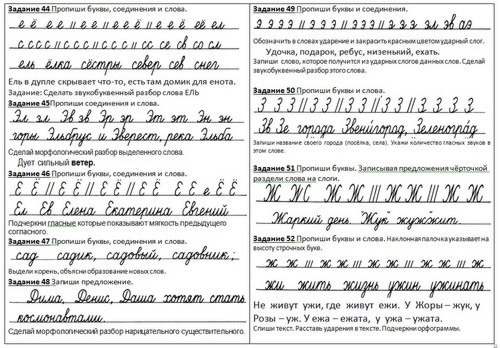 Задание 44 Пропиши буквы, соединения и слова.
е е е // ее // ёё // ее // ёё её ел
с с с с // сс // сс // сс // сс се св со сл
ель ёлка сёстры север сев снег
Ель в дупле скрывает что-то, есть там домик для енота.
Задание: Сделать звукобуквенный разбор слова ЕЛЬ
Задание 45 Пропиши соединения и слова.
Эл эл Эв эв Эр эр Эт эт Эн эн
горы Эльбрус и Эверест, река Эльба
Сделай морфологический разбор выделенного слова.
Дует сильный ветер.
Задание 46 Пропиши буквы, соединения и слова.
Е Ё // Е Ё // Е Ё // Е Ё Е Е е Ё Ё
Ел Ев Елена Екатерина Евгений
Подчеркни гласные которые показывают мягкость предыдущего
согласного.
Задание 47 Пропиши буквы, соединения и слова.
сад садик, садовый, садовник;
Выдели корени, объясни образование новых слов.
Задание 48 Запиши предложение.
Дима, Денис, Даша хотят стать
космонавтами.
Сделай морфологический разбор нарицательного существительного.
Задание 49 Пропиши буквы и соединения.
э э э э // э э // э э // э э эл эв аэ
Обозначить в словах ударение и закрасить красным цветом ударный слог.
Удочка, подарок, ребус, низенький, ехать.
Запиши слово, которое получится из ударных слогов данных слов. Сделай
звукобуквенный разбор этого слова.
Задание 50 Пропиши буквы и слова.
З З З // З З // З З // З З З З З
Зв Зе города Звенигород, Зеленоград
Запиши название своего города (посёлка, села). Укажи количество гласных звуков в
этом слове.
Задание 51 Пропиши буквы. Записывая предложения чёрточкой
раздели слова на слоги.
Ж Ж Ж Ж /// Ж Ж /// Ж Ж Ж
Жаркий день. Жук жужжит.
Задание 52 Пропиши буквы и слова. Наклонная палочка указывает на
высоту строчных букв.
ж ж /// ж ж /// ж ж /// ж ж ж ж
жи жить жизнь ужин ужинать
Не живут ужи, где живут ежи. У Жоры – жук, у
Розы – уж. У ежа – ежата, у ужа – ужата.
Спиши текст. Расставь ударения в тексте. Подчеркни орфограммы.